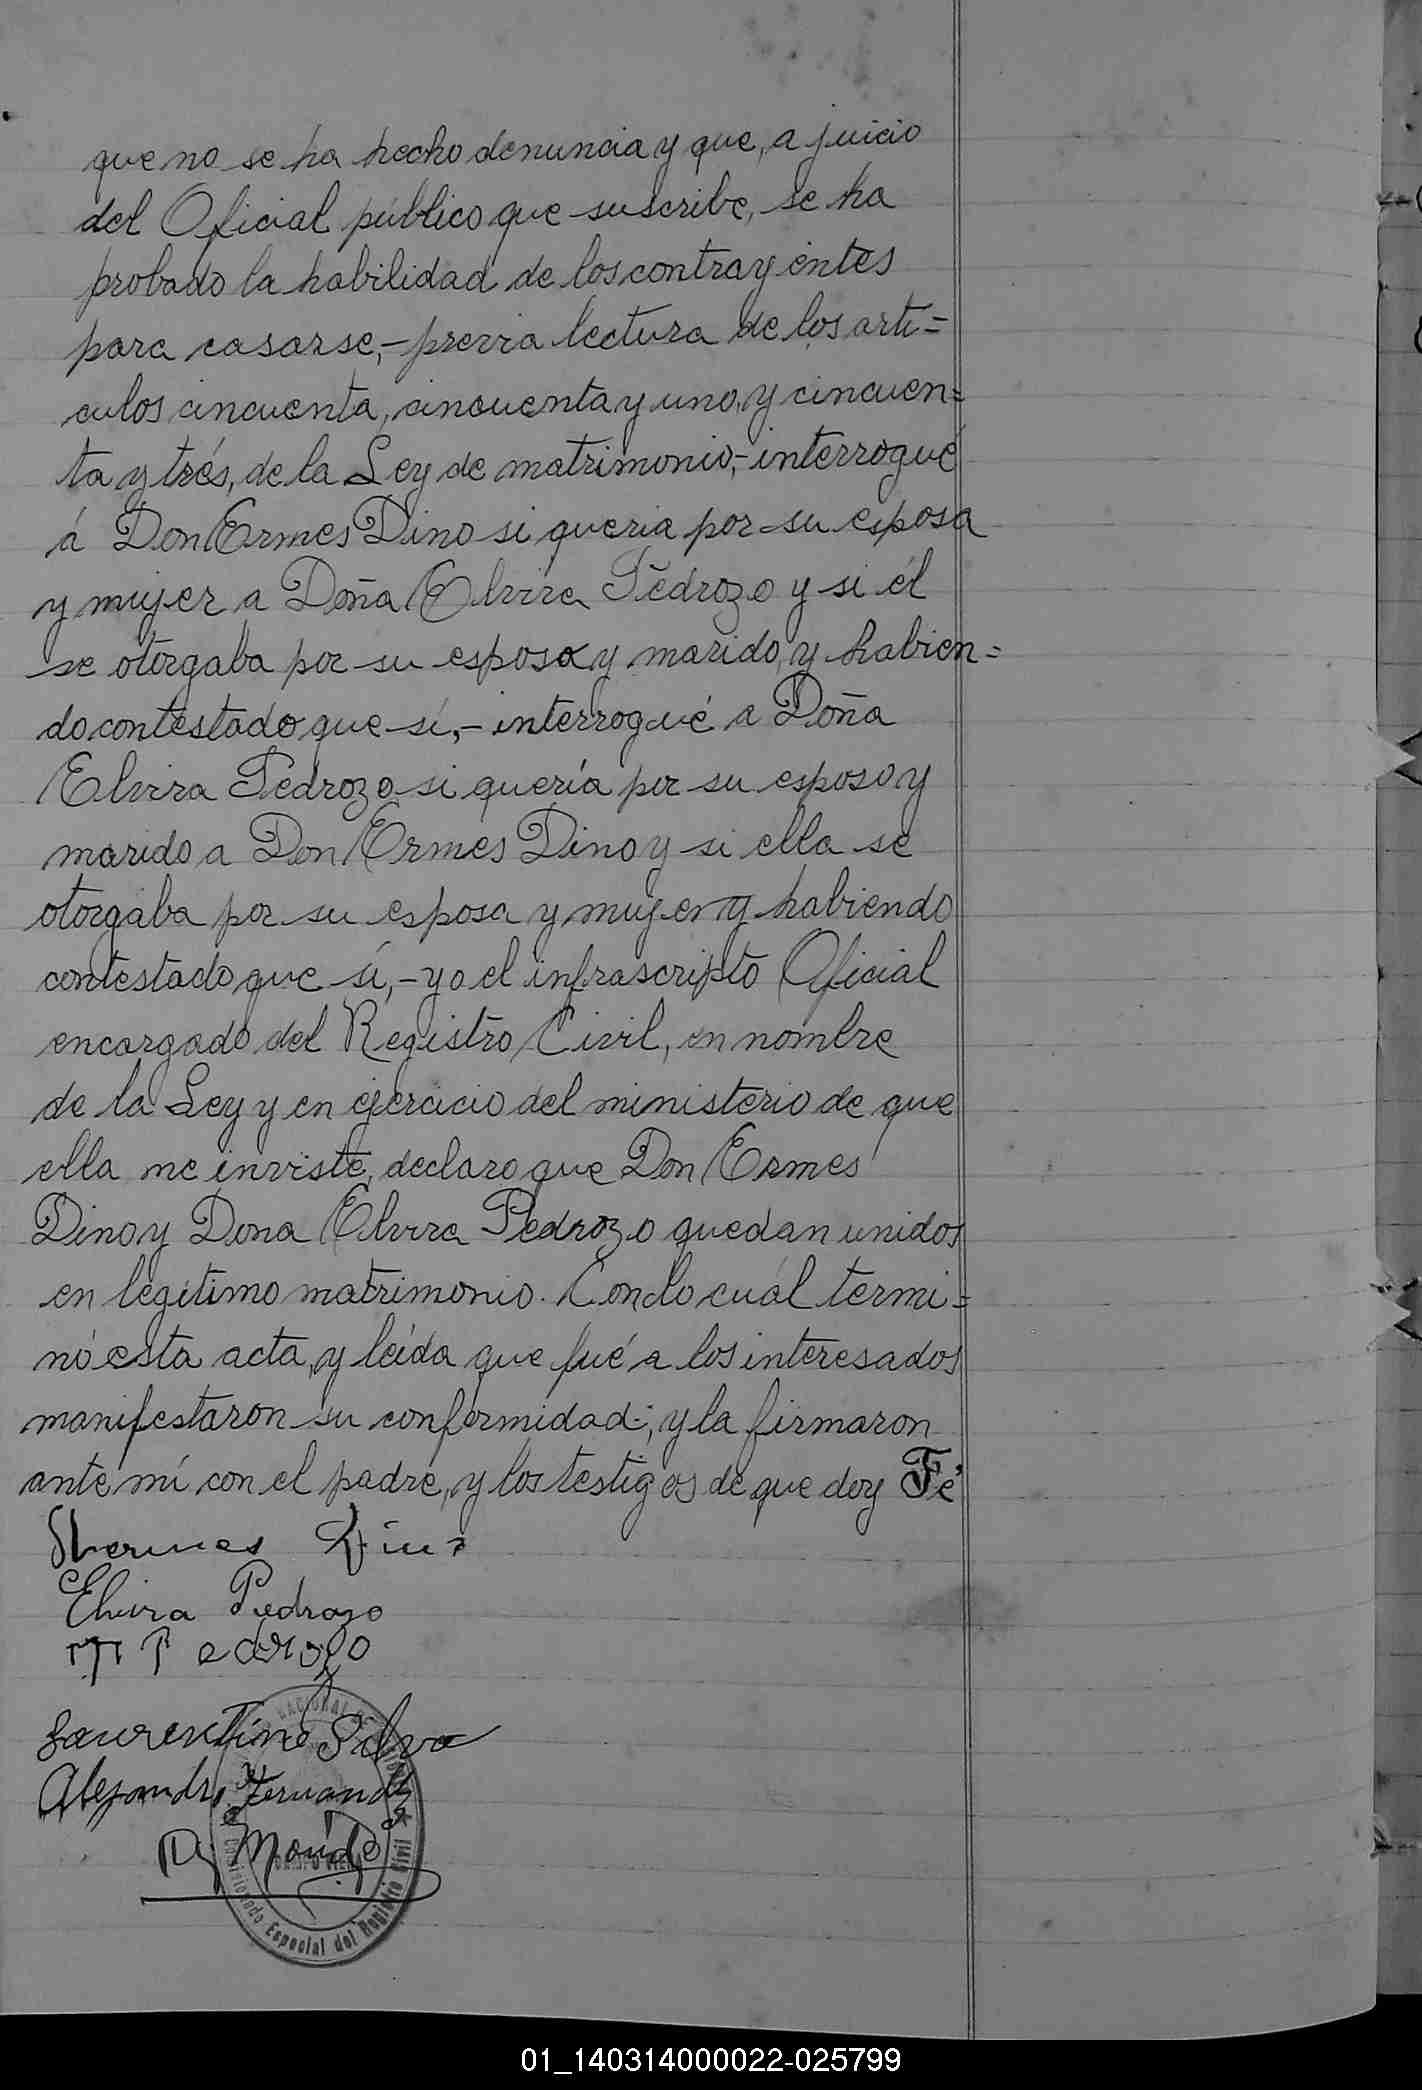 que no se ha hecho denuncia y que, a juicio
del Oficial público que suscribe, se ha
probado la habilidad de los contrayentes
para casarse,- previa lectura de los artí=
culos cincuenta, cincuenta y uno, y cincuen=
ta y trés, de la Ley de matrimonio,- interrogué
á Don Ermes Dino si queria por su esposa
y mujer a Doña Elvira Pedrozo y si él
se otorgaba por su esposo y marido, y habien=
do contestado que sí,- interrogué a Doña
Elvira Pedrozo si quería por su esposo y
marido a Don Ermes Dino y si ella se
otorgaba por su esposa y mujer y habiendo
contestado que sí,- yo el infrascripto Oficial
encargado del Registro Civil, en nombre
de la Ley y en ejercicio del ministerio de que
ella me inviste, declaro que Don Ermes
Dino y Dona Elvira Pedrozo quedan unidos
en legítimo matrimonio. Con lo cuál termi=
nó esta acta, y leída que fué a los interesados
manifestaron su conformidad; y la firmaron
ante mí con el padre, y los testigos de que doy Fé
Hermes Dino
Elvira Pedrozo
M Pedrozo
Laurentino Silva
Alejandro Fernandez
NACIONAL DE
CAMPO VIERA
Comisionado Especial del Registro Civil
01_140314000022-025799